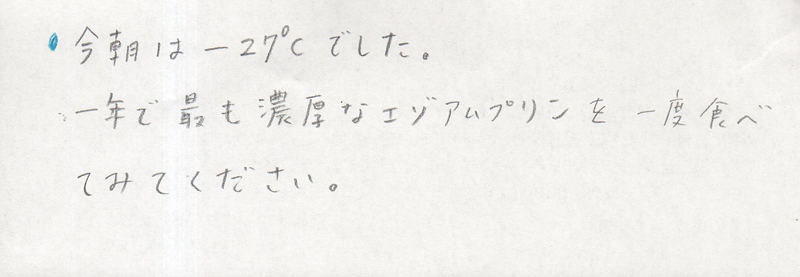 今朝は-27℃でした。
一年で最も濃厚なエゾアムプリンを一度食べ
てみてください。